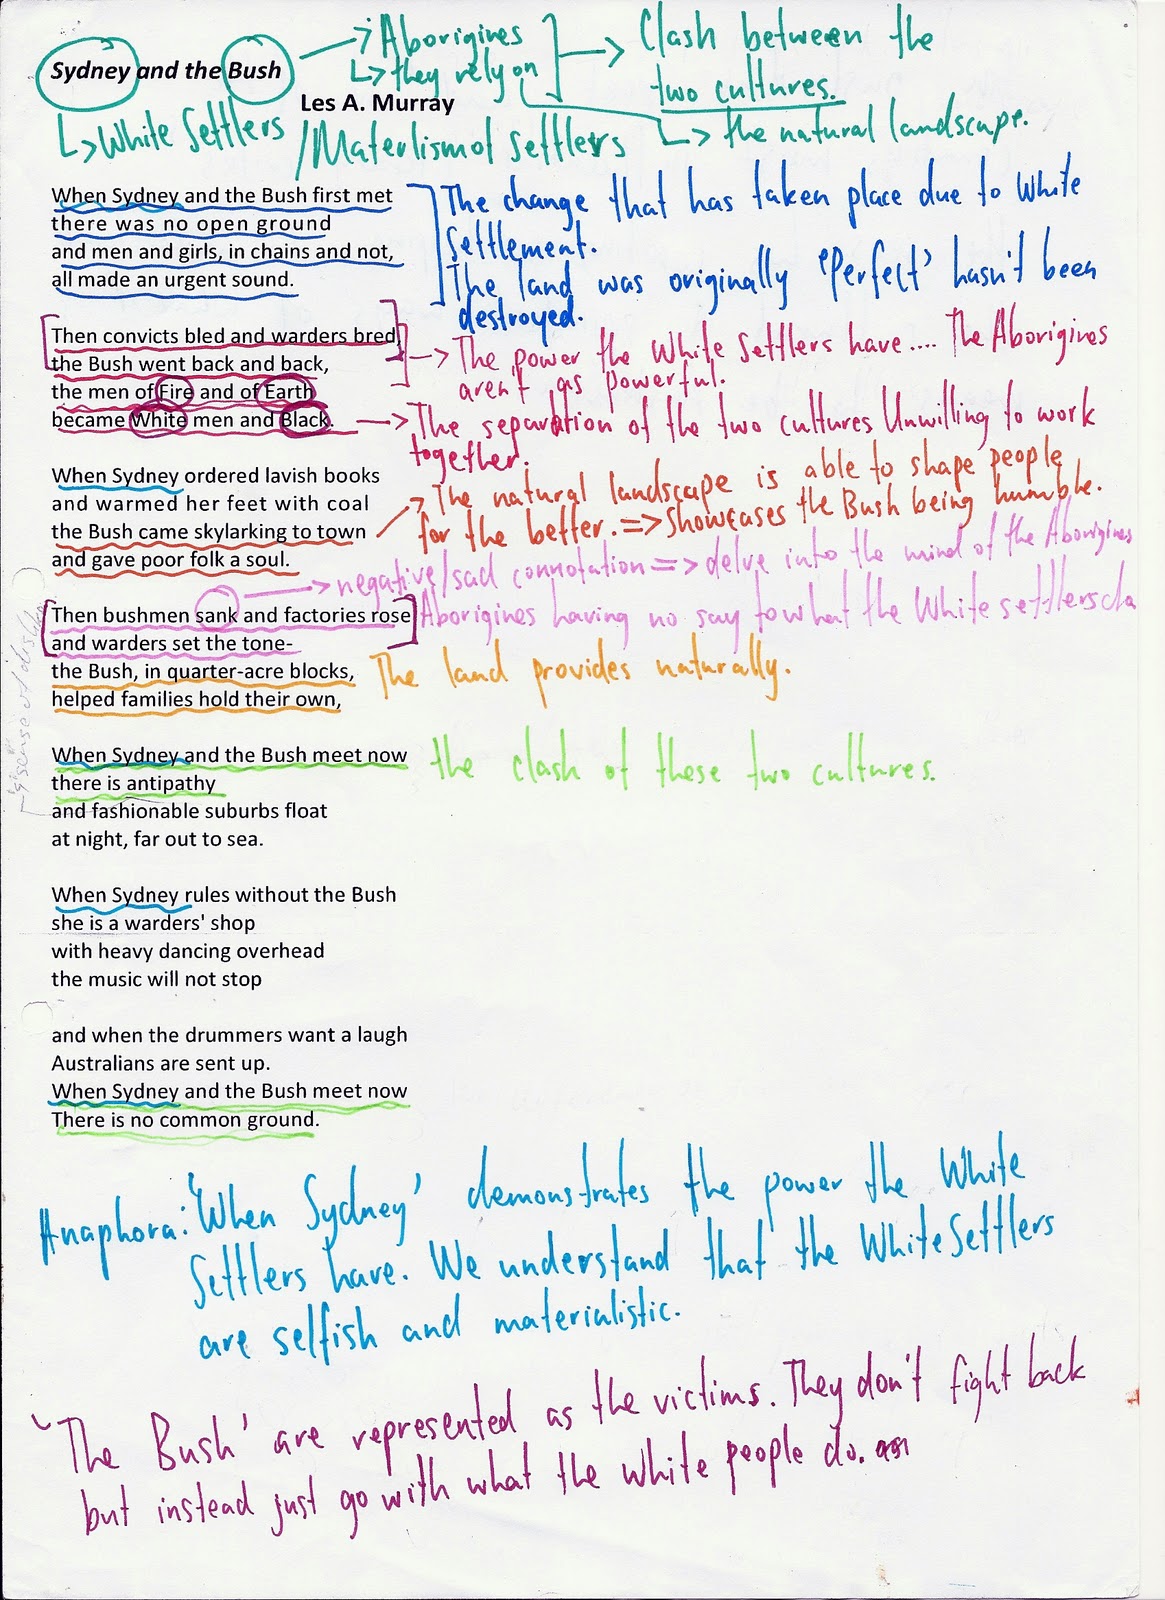 Sydney and the Bush
→ Aborigines
↳ they rely on
→ Clash between the
two cultures.
↳ the natural landscape.
Les A. Murray
↳ White Settlers
/Materlism of settlers
When Sydney and the Bush first met
there was no open ground
and men and girls, in chains and not,
all made an urgent sound.
The change that has taken place due to White
Settlement.
The land was originally 'Perfect' hasn't been
destroyed.
Then convicts bled and warders bred,
the Bush went back and back,
the men of Fire and of Earth
became White men and Black.
→ The power the White Settlers have.... The Aborigines
aren't as powerful.
→ The separation of the two cultures Unwilling to work
together.
When Sydney ordered lavish books
and warmed her feet with coal
the Bush came skylarking to town
and gave poor folk a soul.
→ The natural landscape is able to shape people
for the better. => Showcases the Bush being humble.
→ negative/sad connotation => delve into the mind of the Aborigines
Then bushmen sank and factories rose
and warders set the tone-
the Bush, in quarter-acre blocks,
helped families hold their own,
Aborigines having no say to what the White settlers
The land provides naturally.
When Sydney and the Bush meet now
there is antipathy
and fashionable suburbs float
at night, far out to sea.
the clash of these two cultures.
When Sydney rules without the Bush
she is a warders' shop
with heavy dancing overhead
the music will not stop
and when the drummers want a laugh
Australians are sent up.
When Sydney and the Bush meet now
There is no common ground.
Anaphora: 'When Sydney' demonstrates the power the White
Settlers have. We understand that the White Settlers
are selfish and materialistic.
'The Bush' are represented as the victims. They don't fight back
but instead just go with what the white people do.